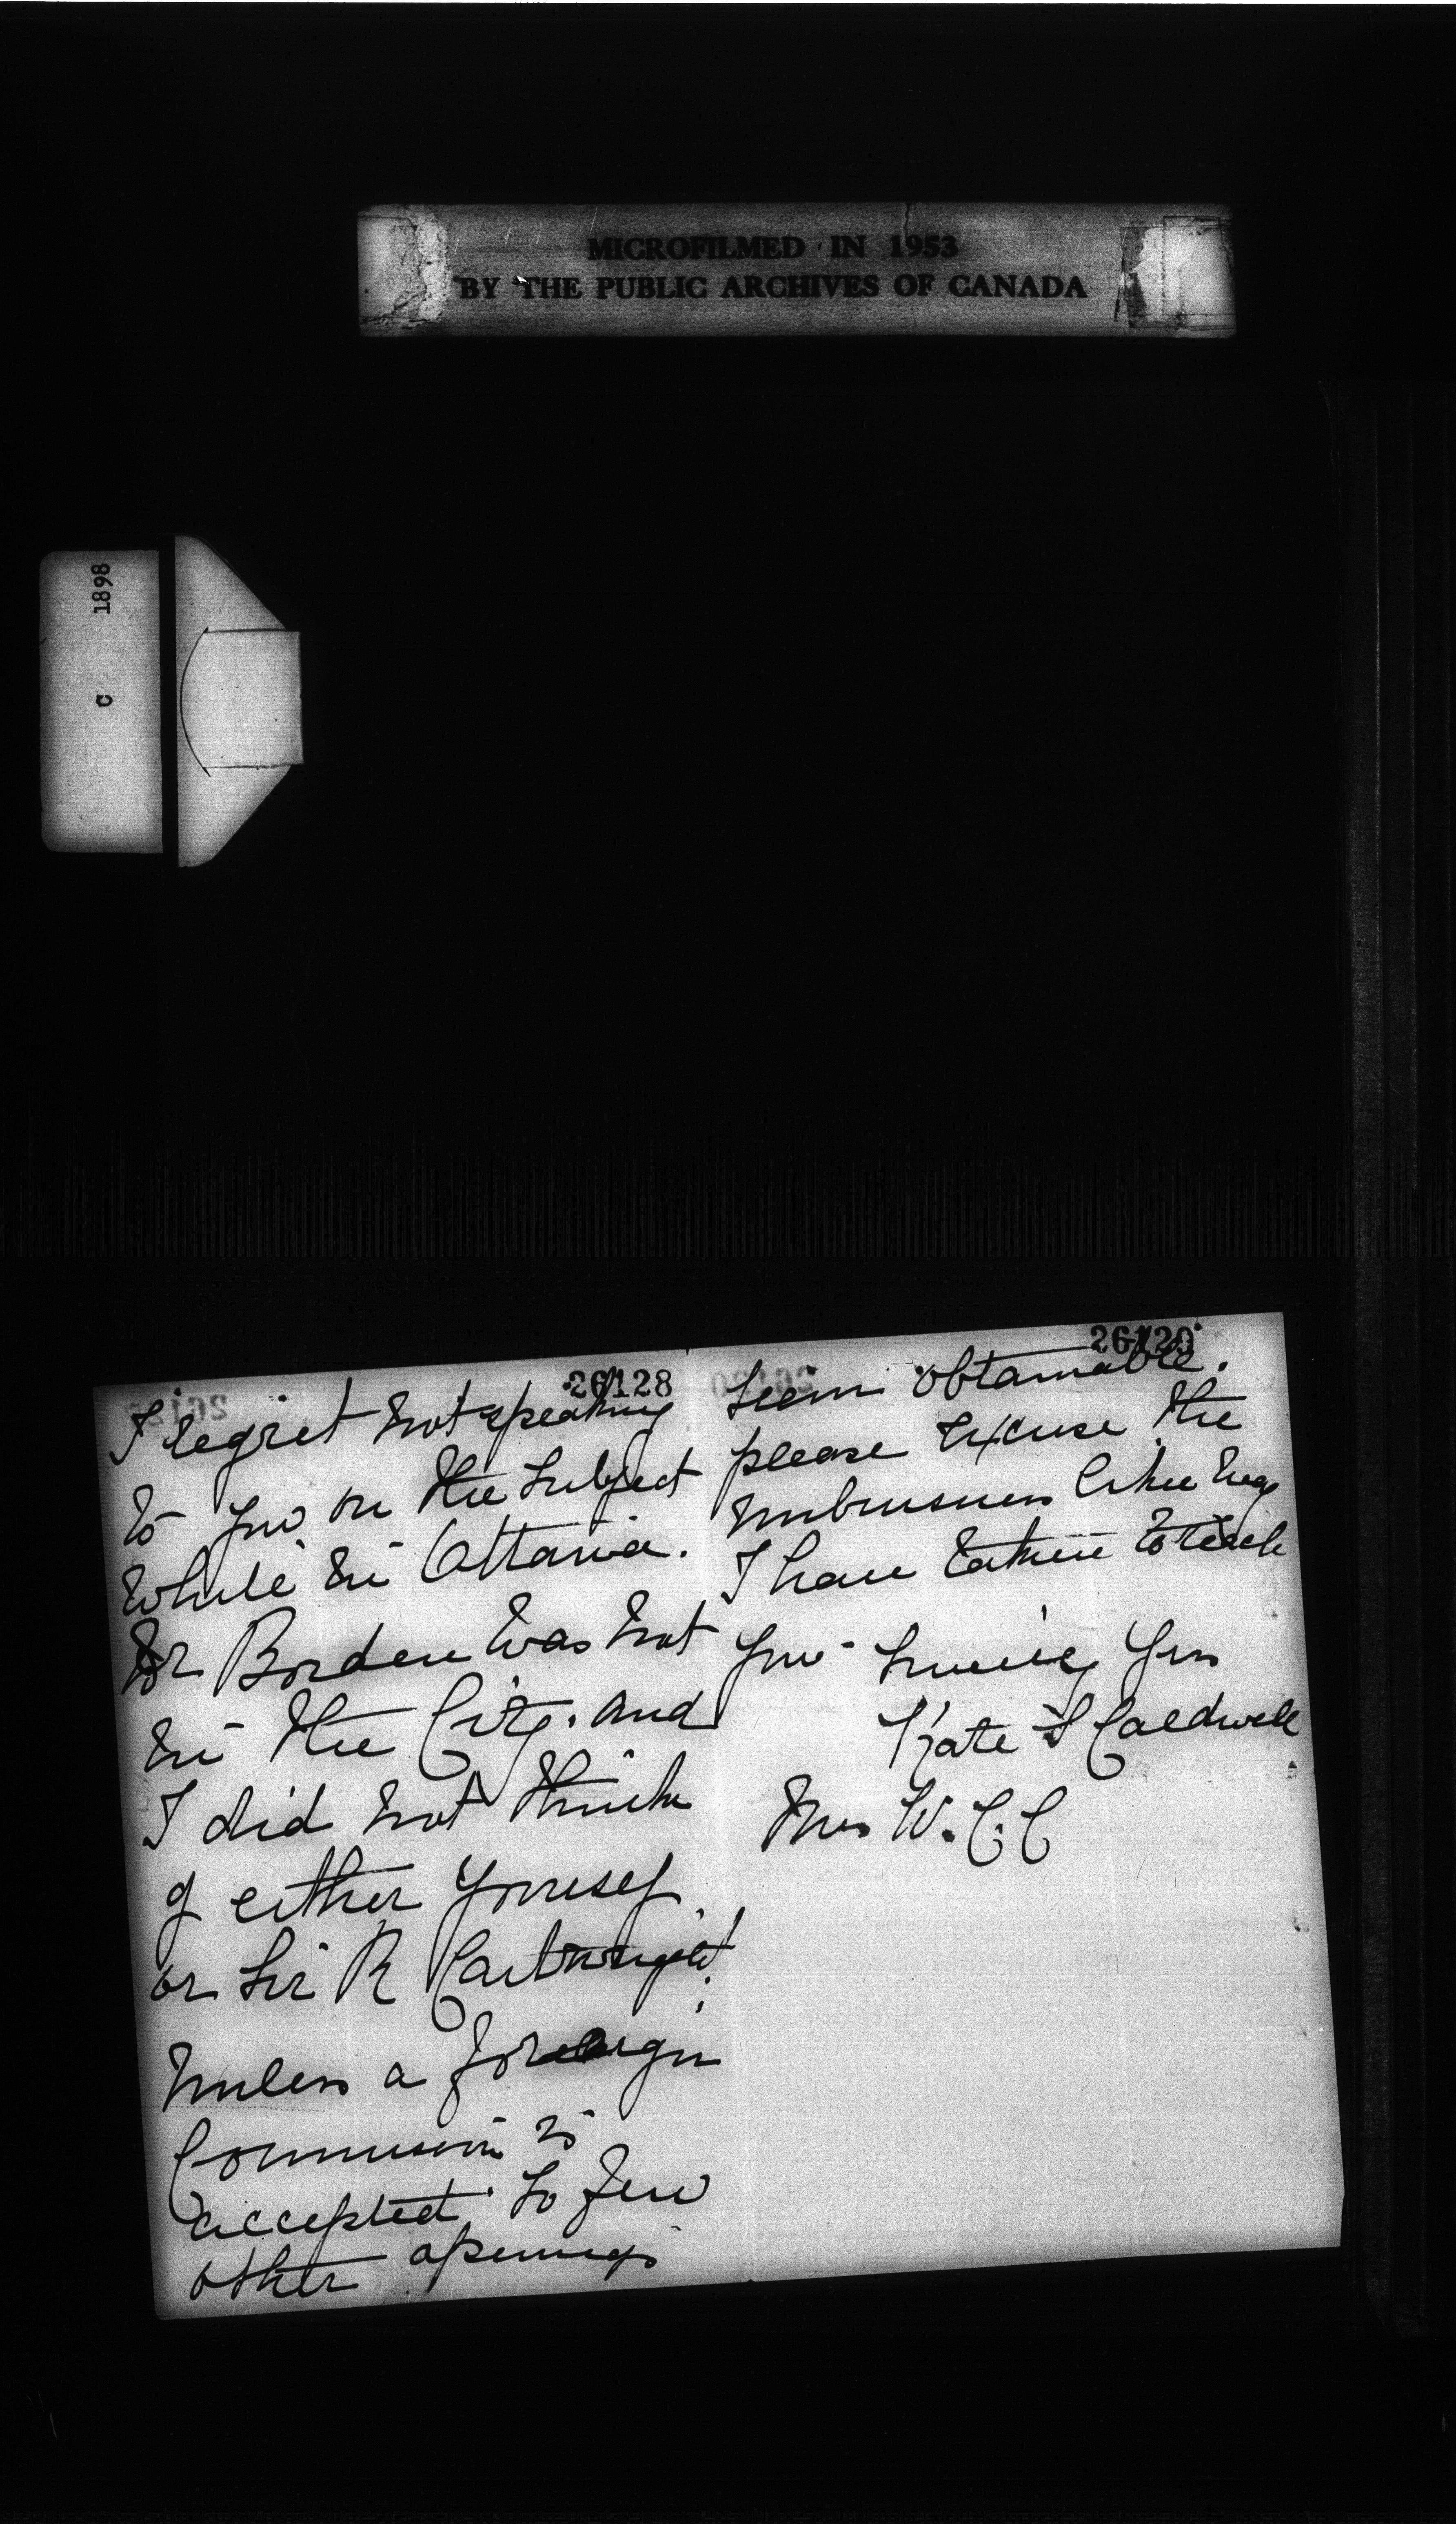 MICROFILMED IN 1953
BY THE PUBLIC ARCHIVES OF CANADA
C 1898
26128
I regret not speaking
to you on the subject
while in Ottawa.
Dr Borden was not
in the City. and
I did not think
of either yourself
or Sir R Cartwright.
Unless a foreign
Commission is
accepted so few
other openings
26129
seem obtainable.
please excuse the
I have taken to reach
you
Kate S Caldwell
Mrs W. C. C